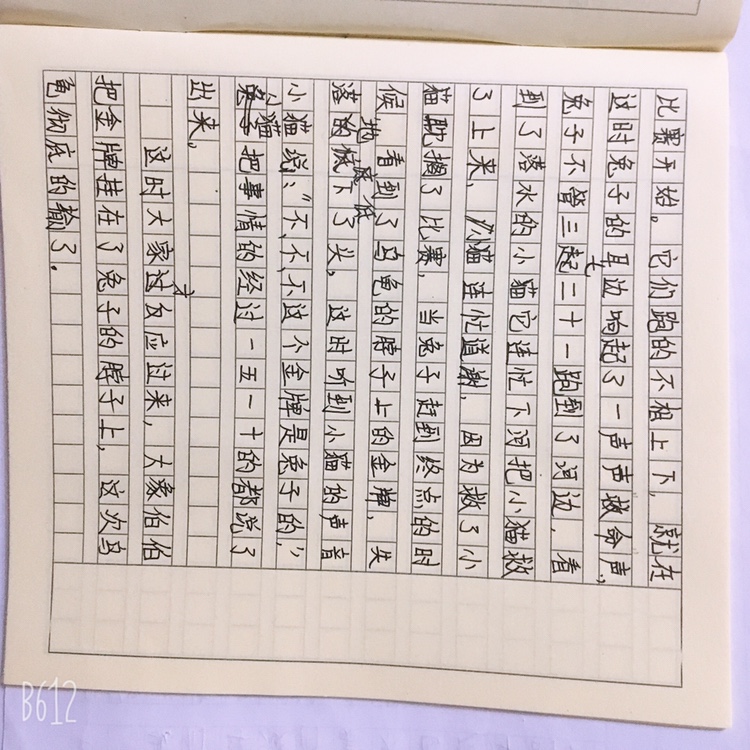 比赛开始。它们跑的不相上下，就在
这时兔子的耳边响起了一声声救命声，
兔子不管三七二十一跑到了河边，看
到了落水的小猫它连忙下河把小猫救
了上来，小猫连忙道谢，因为救了小
猫耽搁了比赛，当兔子赶到终点的时
候，看到了乌龟的脖子上的金牌，失
落地低下了头，这时听到小猫的声音
小猫说：“不，不，不这个金牌是兔子的，”
小猫把事情的经过一五一十的都说了
出来。
这时大家才反应过来，大象伯伯
把金牌挂在了兔子的脖子上，这次乌
龟彻底的输了。
B612